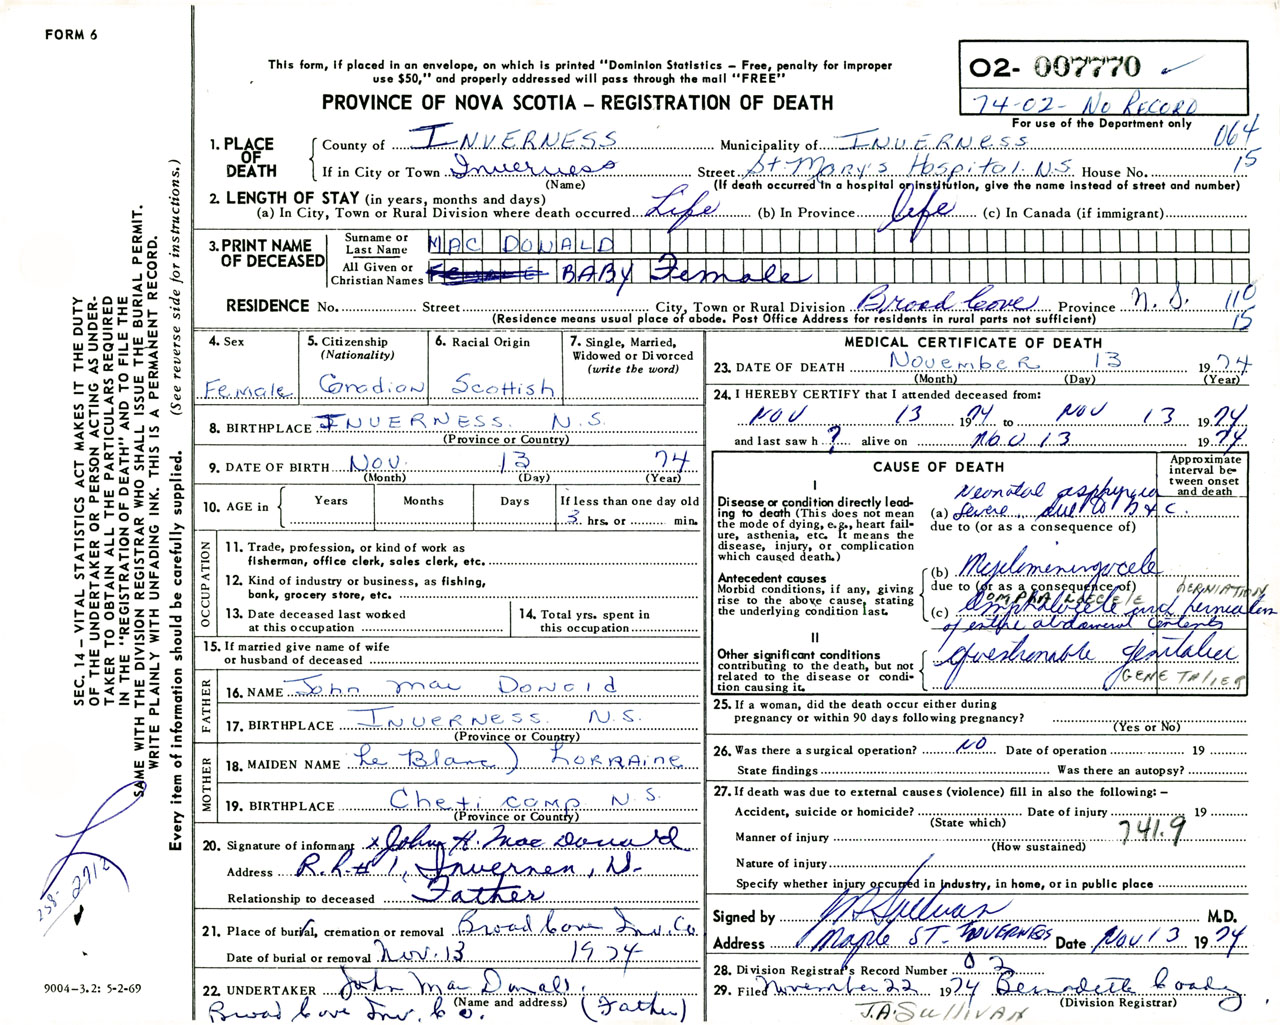 FORM 6
This form, if placed in an envelope, on which is printed "Dominion Statistics – Free, penalty for improper
use $50," and properly addressed will pass through the mail "FREE"
PROVINCE OF NOVA SCOTIA – REGISTRATION OF DEATH
02- 007770 ✓
74-02- No Record
For use of the Department only
064
15
1. PLACE OF DEATH
County of INVERNESS Municipality of INVERNESS
If in City or Town Inverness Street St. Mary's Hospital N.S House No.
(Name) (If death occurred in a hospital or institution, give the name instead of street and number)
2. LENGTH OF STAY (in years, months and days)
(a) In City, Town or Rural Division where death occurred Life (b) In Province life (c) In Canada (if immigrant)
3. PRINT NAME OF DECEASED
Surname or Last Name MAC DONALD
All Given or Christian Names BABY Female
RESIDENCE No. Street City, Town or Rural Division Broad Cove Province N.S. 110
15
(Residence means usual place of abode. Post Office Address for residents in rural parts not sufficient)
4. Sex Female
5. Citizenship (Nationality) Canadian
6. Racial Origin Scottish
7. Single, Married, Widowed or Divorced (write the word)
8. BIRTHPLACE INVERNESS N.S.
(Province or Country)
9. DATE OF BIRTH Nov. 13 74
(Month) (Day) (Year)
10. AGE in Years Months Days If less than one day old
3 hrs. or min.
OCCUPATION
11. Trade, profession, or kind of work as
fisherman, office clerk, sales clerk, etc.
12. Kind of industry or business, as fishing,
bank, grocery store, etc.
13. Date deceased last worked
at this occupation
14. Total yrs. spent in
this occupation
15. If married give name of wife
or husband of deceased
FATHER
16. NAME John Mac Donald
17. BIRTHPLACE INVERNESS. N.S.
(Province or Country)
MOTHER
18. MAIDEN NAME Le Blanc) LORRAINE
19. BIRTHPLACE Cheti camp N.S.
(Province or Country)
20. Signature of informant x John H. Mac Donald
Address R.R# 1, Inverness, N-
Relationship to deceased Father
21. Place of burial, cremation or removal Broad Cove Inv. Co
Date of burial or removal Nov. 13 1974
22. UNDERTAKER John Mac Donald.
(Name and address) (Father)
Broad Cove Inv. Co.
MEDICAL CERTIFICATE OF DEATH
23. DATE OF DEATH November 13 1974
(Month) (Day) (Year)
24. I HEREBY CERTIFY that I attended deceased from:
NOV 13 1974 to NOV 13 1974
and last saw h ? alive on NOV 13 1974
CAUSE OF DEATH
Approximate interval between onset and death
I
Disease or condition directly lead-
ing to death (This does not mean
the mode of dying, e.g., heart fail-
ure, asthenia, etc. It means the
disease, injury, or complication
which caused death.)
Neonatal asphyxia
(a) severe due to b & c.
due to (or as a consequence of)
Antecedent causes
Morbid conditions, if any, giving
rise to the above cause, stating
the underlying condition last.
(b) Myelomeningocele
due to (or as a consequence of)
OMPHALOCELE HERNIATION
(c) Omphalocele and herniation
of entire abdominal contents
II
Other significant conditions
contributing to the death, but not
related to the disease or condi-
tion causing it.
Questionable genitalia
GENETALIER
25. If a woman, did the death occur either during
pregnancy or within 90 days following pregnancy?
(Yes or No)
26. Was there a surgical operation? NO Date of operation 19
State findings Was there an autopsy?
27. If death was due to external causes (violence) fill in also the following: –
Accident, suicide or homicide? Date of injury 19
(State which)
Manner of injury 741.9
(How sustained)
Nature of injury
Specify whether injury occurred in Industry, in home, or in public place
Signed by Sullivan M.D.
Address Maple ST- INVERNESS Date Nov 13 1974
28. Division Registrar's Record Number 02
29. Filed November 22 1974 Bernadette Coady
(Division Registrar)
J.A. SULLIVAN
SEC. 14 – VITAL STATISTICS ACT MAKES IT THE DUTY
OF THE UNDERTAKER OR PERSON ACTING AS UNDER-
TAKER TO OBTAIN ALL THE PARTICULARS REQUIRED
IN THE "REGISTRATION OF DEATH" AND TO FILE THE
SAME WITH THE DIVISION REGISTRAR WHO SHALL ISSUE THE BURIAL PERMIT.
WRITE PLAINLY WITH UNFADING INK. THIS IS A PERMANENT RECORD.
Every item of information should be carefully supplied. (See reverse side for instructions.)
9004-3.2: 5-2-69